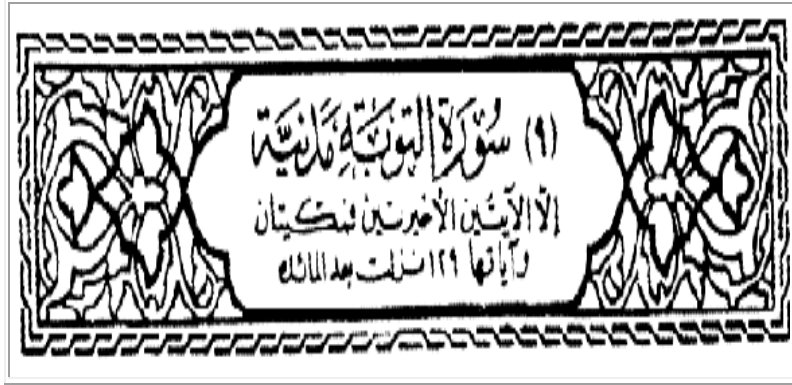 (٩) سُورَة التوبَةِ مَدَنيَّة
إلّا الآيتَين الأخيرتَين فمكيتان
وآياتها ١٢٩ نزلت بعد المائدة